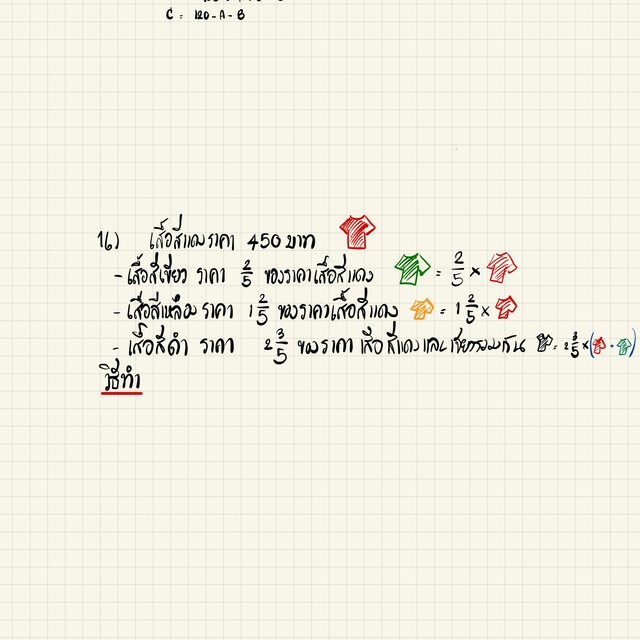 C = 120 - A - B
16) เสื้อสีแดงราคา 450 บาท
- เสื้อสีเขียว ราคา 2/5 ของราคาเสื้อสีแดง = 2/5 ×
- เสื้อสีเหลือง ราคา 1 2/5 ของราคาเสื้อสีแดง = 1 2/5 ×
- เสื้อสีดำ ราคา 2 3/5 ของราคา เสื้อสีแดงและเขียวรวมกัน = 2 3/5 × ( + )
วิธีทำ